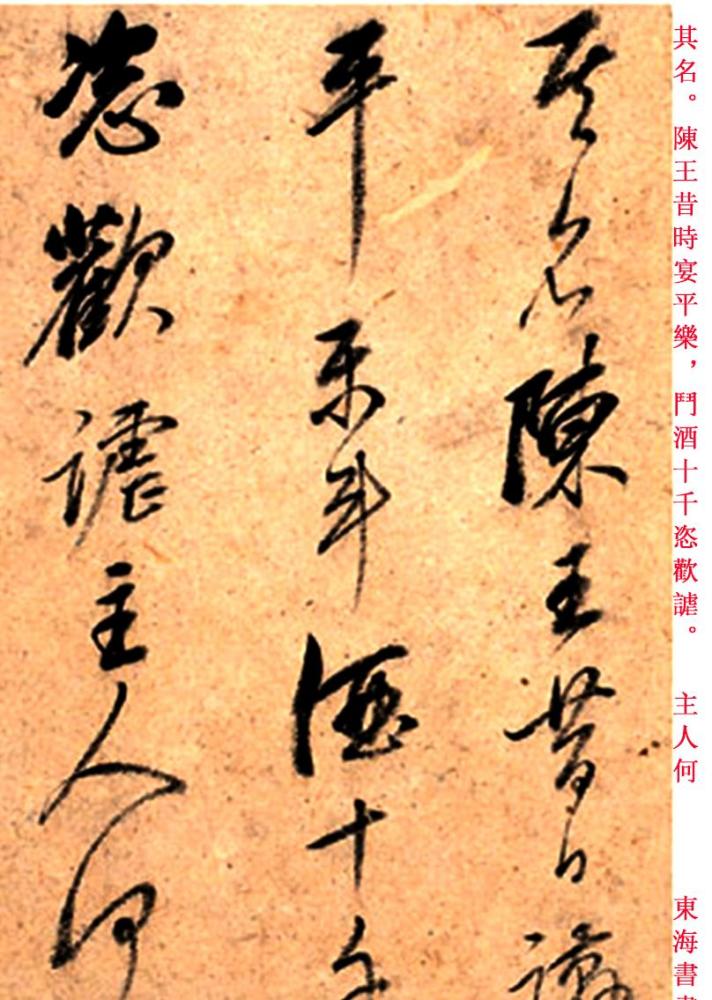 其名。陳王昔時宴平樂，鬥酒十千恣歡謔。 主人何 東海書
其名陳王昔日讌
平樂斗酒十千
恣歡謔主人何